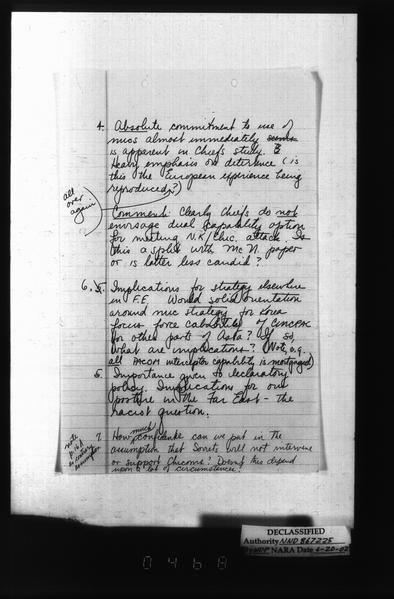 4. Absolute commitment to use of
nucs almost immediately seems
is apparent in Chiefs study.
Heavy emphasis on deterrence (is
this the European experience being
reproduced?)
all
over
again
Comment: Clearly Chiefs do not
envisage dual capability option
for meeting N.K/Chic. attack. Is
this a split with McN paper
or is latter less candid?
6. 5. Implications for strategy elsewhere
in F.E. Would solid orientation
around nuc strategy for Korea
focus force capabilities of CINCPAC
for other parts of Asia? If so,
what are implications? (Note, e.g.
all PACOM interceptor capability is mortgaged)
5. Importance given to declaratory
policy. Implications for our
posture in the Far East - the
racist question.
note
p. 16A
on contrary
assumption
7. How much confidence can we put in the
assumption that Soviets will not intervene
or support Chicoms? Doesn't this depend
upon a lot of circumstances?
DECLASSIFIED
Authority NND 867225
NARA Date 6-20-02
0468